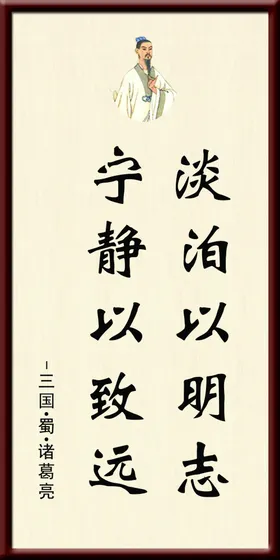 淡泊以明志
宁静以致远
–三国·蜀·诸葛亮